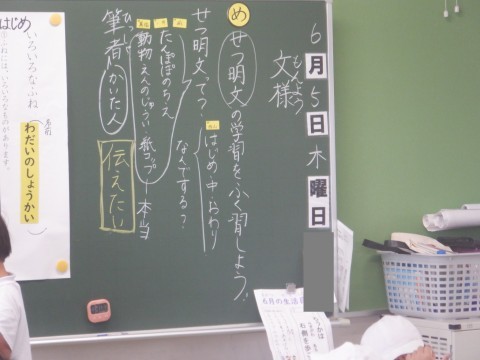 6月5日木曜日
もんよう
文様
め せつ明文の学習をふく習しよう。
せつ明文って?
はじめ・中・おわり
たんぽぽのちえ
なんでする?
動物えんのじゅうい・紙コップ→本当
筆者(かいた人)
伝えたい
はじめ
いろいろなふね
わだいのしょうかい
6月の生活